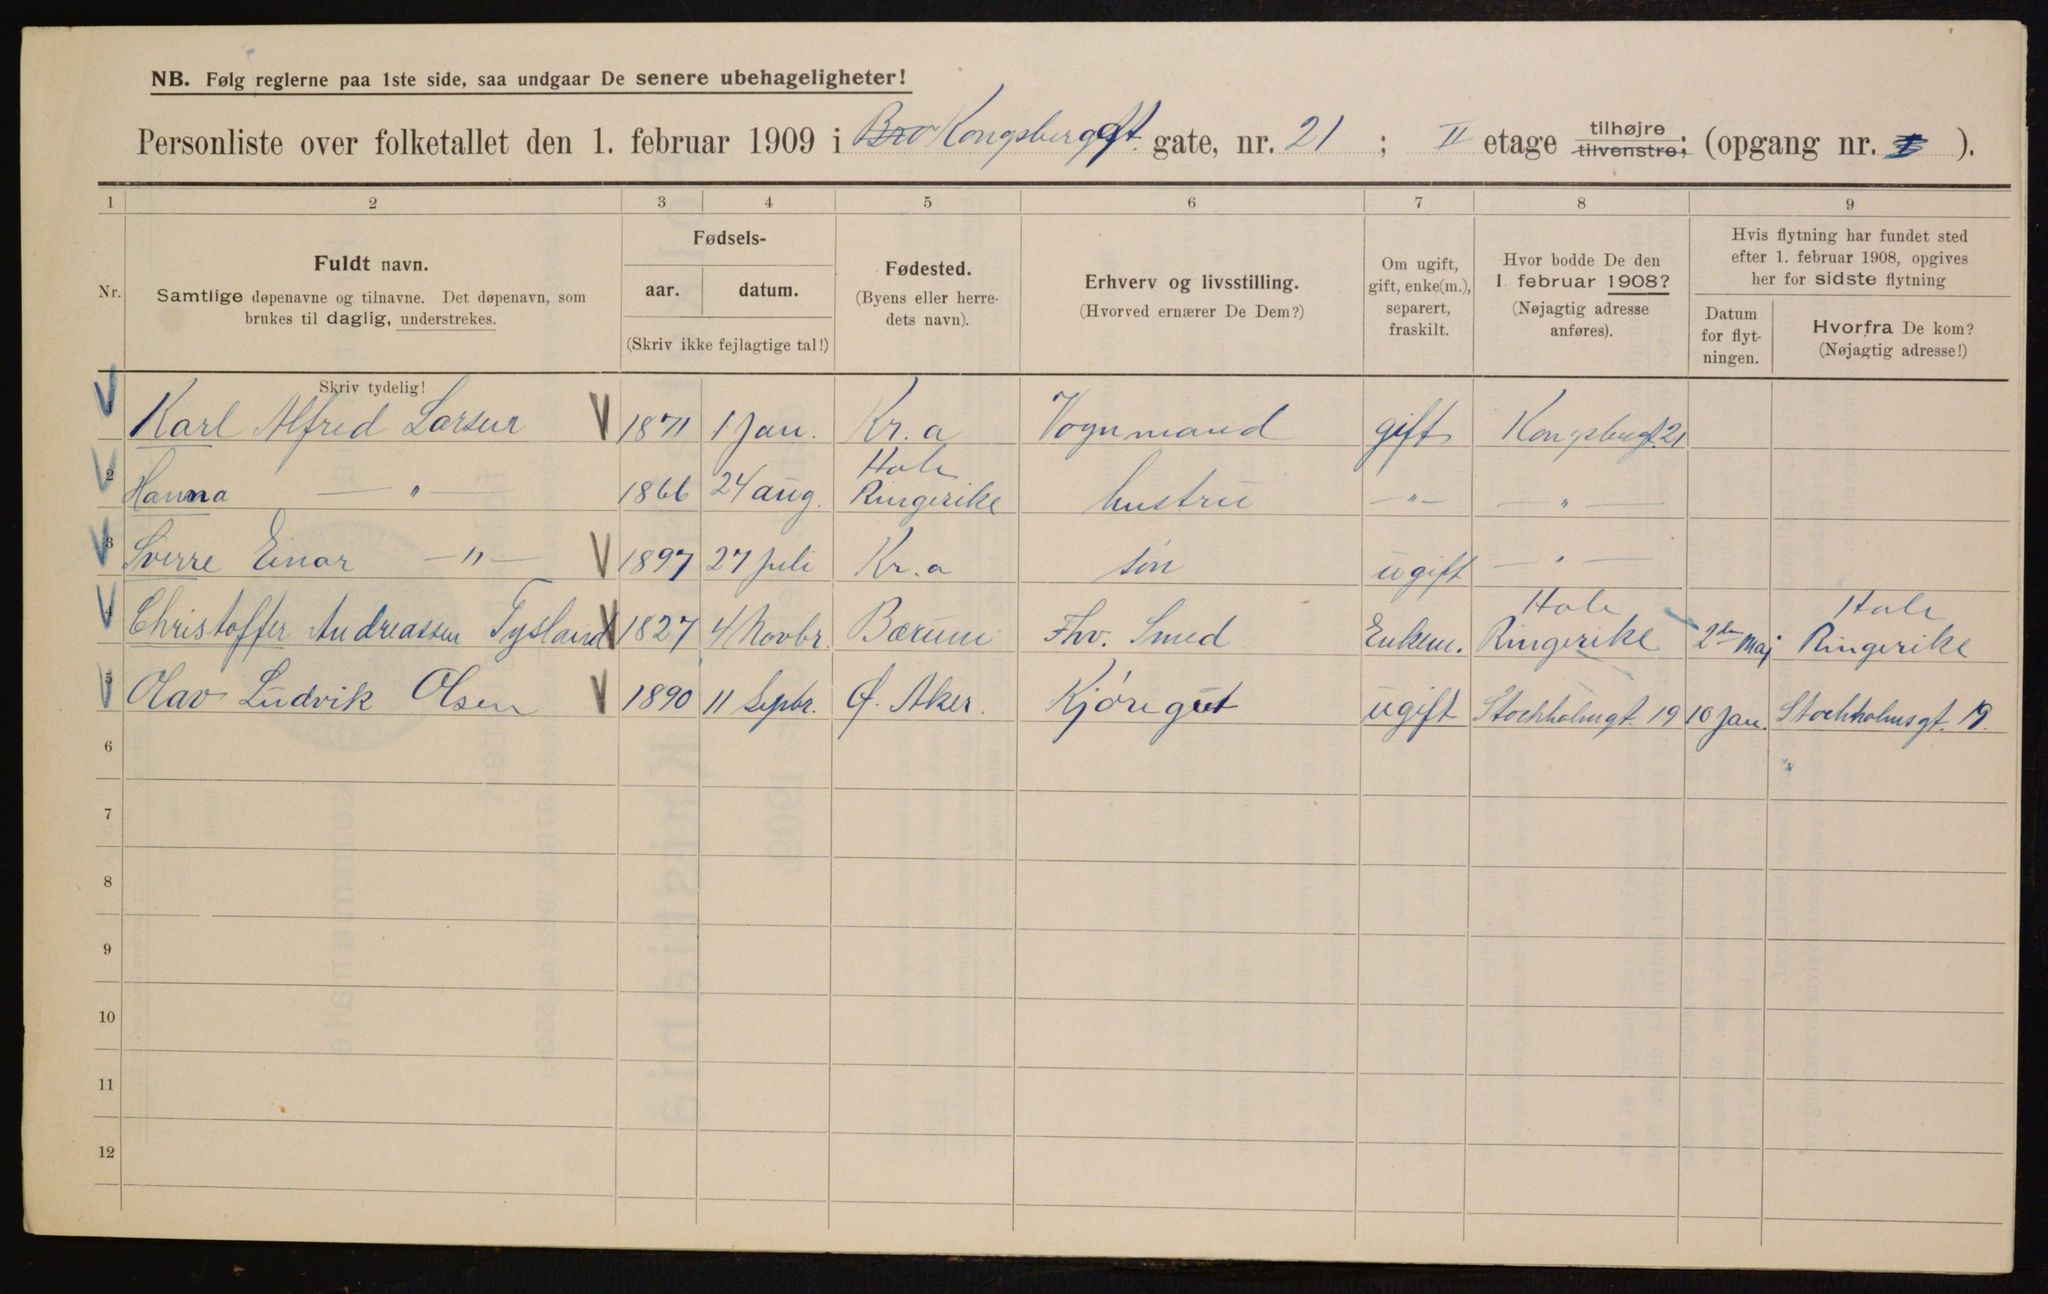 NB. Følg reglerne paa 1ste side, saa undgaar De senere ubehageligheter!
Personliste over folketallet den 1. februar 1909 i Bro Kongsberggt. gate, nr. 21 ; II etage tilhøjre tilvenstre; (opgang nr. ).
1 2 3 4 5 6 7 8 9
Nr.
Fuldt navn.
Samtlige døpenavne og tilnavne. Det døpenavn, som
brukes til daglig, understrekes.
Skriv tydelig!
Fødsels-
aar. datum.
(Skriv ikke fejlagtige tal!)
Fødested.
(Byens eller herre-
dets navn).
Erhverv og livsstilling.
(Hvorved ernærer De Dem?)
Om ugift,
gift, enke(m.),
separert,
fraskilt.
Hvor bodde De den
1. februar 1908?
(Nøjagtig adresse
anføres).
Hvis flytning har fundet sted
efter 1. februar 1908, opgives
her for sidste flytning
Datum
for flyt-
ningen.
Hvorfra De kom?
(Nøjagtig adresse!)
1 Karl Alfred Larsen 1871 1 Jan. Kr.a Vognmand gift Kongsbergt. 21
2 Hanna — " — 1866 24 aug. Hole Ringerike hustru — " — — " —
3 Sverre Einar — " — 1897 27 Juli Kr.a søn ugift — " —
4 Christoffer Andreassen Tysland 1827 4 Novbr. Bærum Fhv. Smed Enkem. Hole Ringerike 2den Maj Hole Ringerike
5 Olav Ludvik Olsen 1890 11 Sepbr. Ø. Aker. Kjøregut ugift Stockholmgt. 19 10 Jan. Stockholmsgt. 19.
6
7
8
9
10
11
12